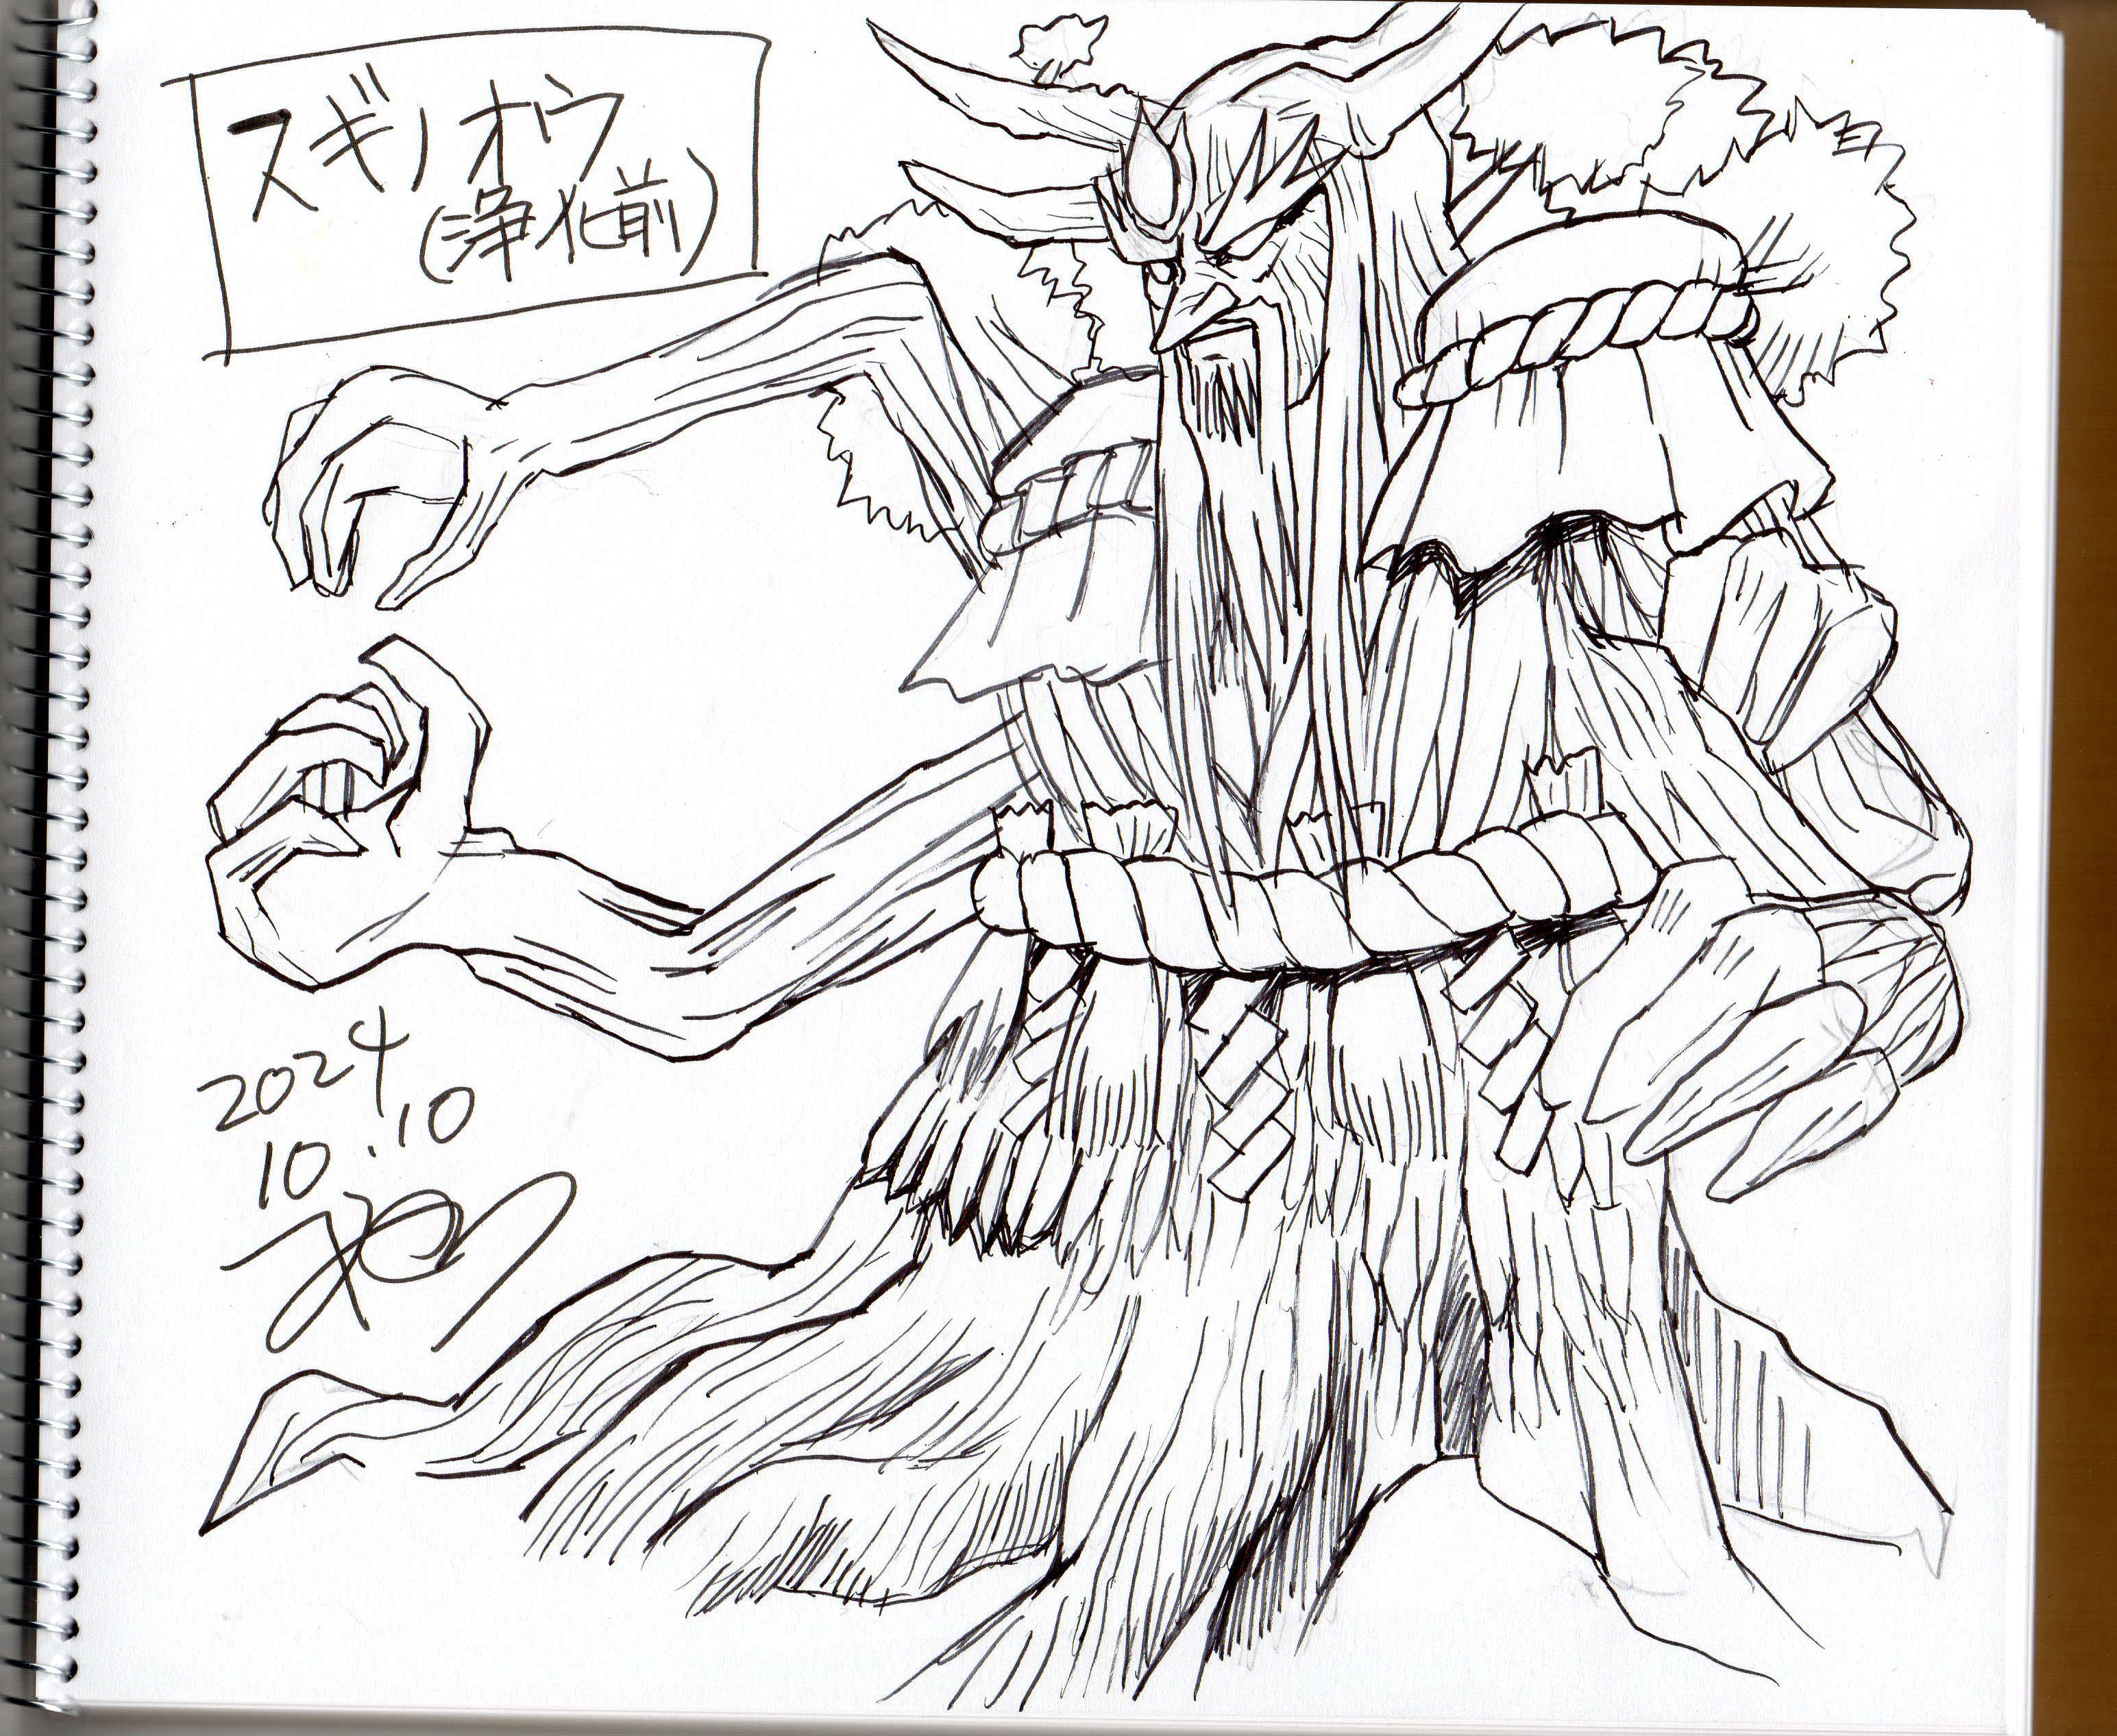 スギノオウ
(浄化前)
2024
10.10